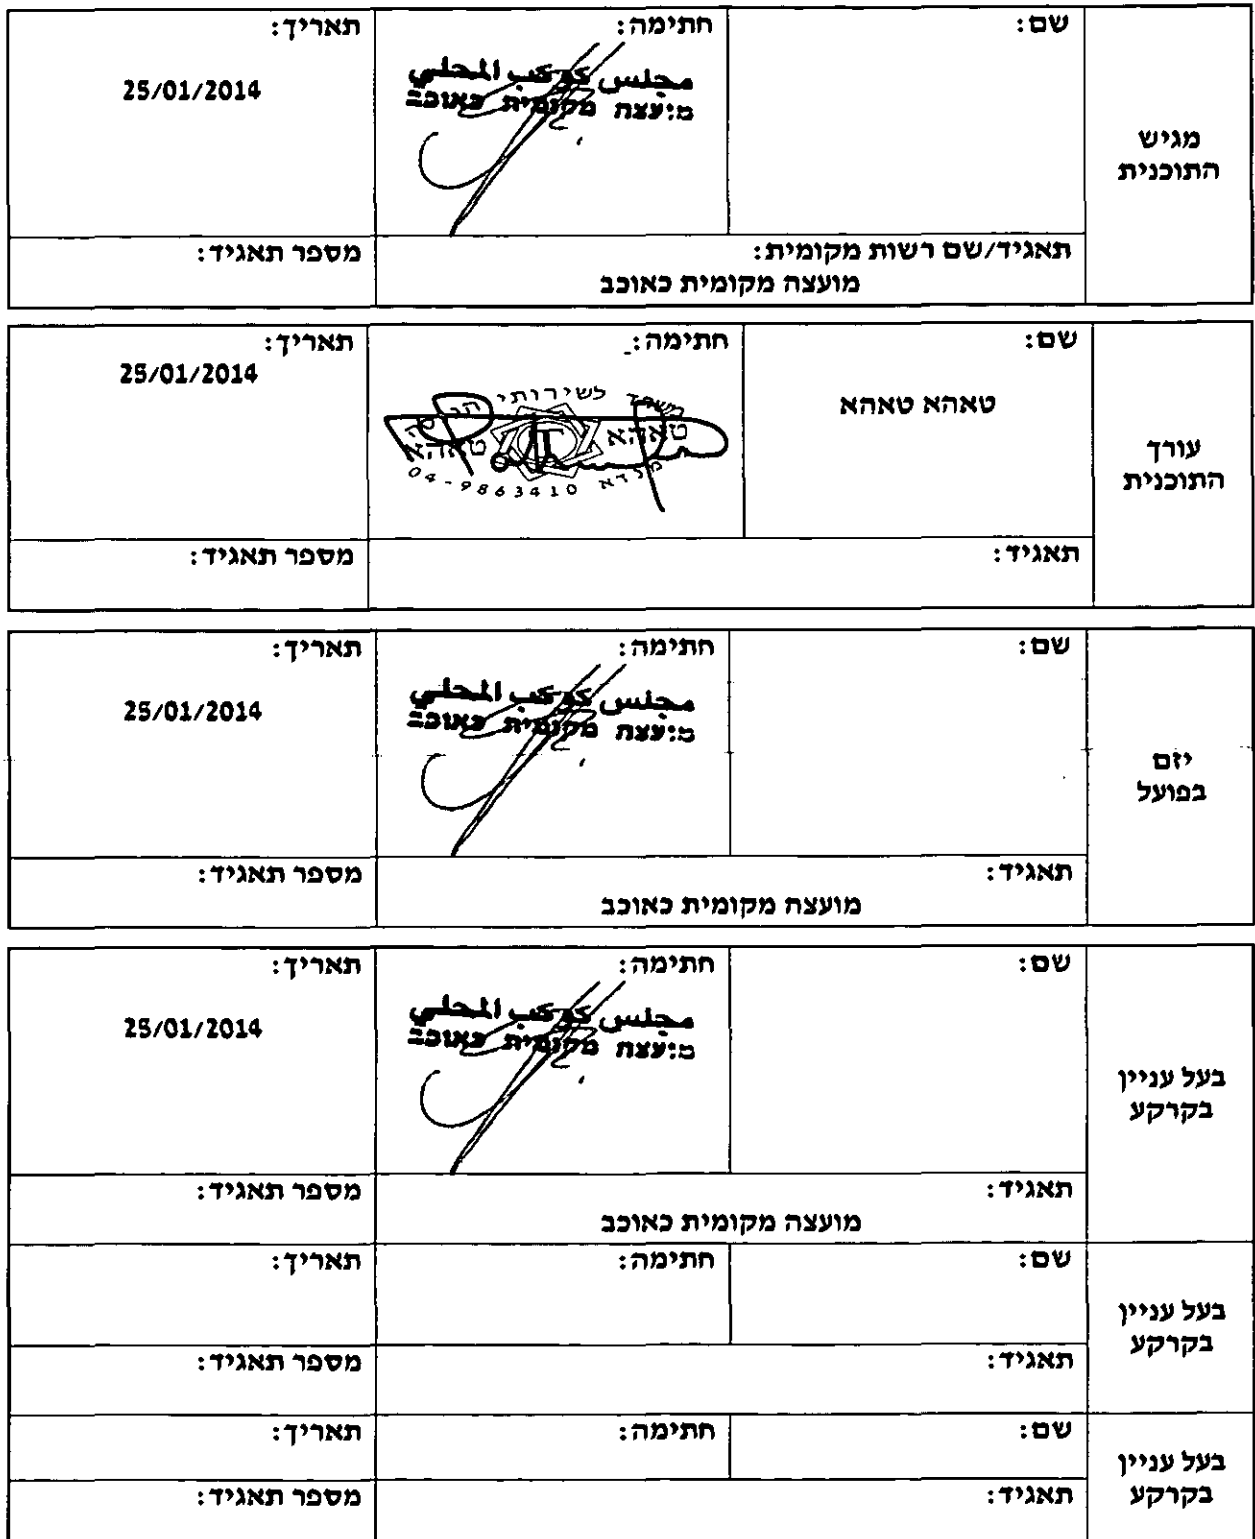 מגיש
התוכנית
שם:
חתימה:
مجلس كوكب المحلي
מועצה מקומית כאוכב
תאריך:
25/01/2014
תאגיד/שם רשות מקומית:
מועצה מקומית כאוכב
מספר תאגיד:
עורך
התוכנית
שם:
טאהא טאהא
חתימה:
משרד לשירותי
טאהא
טאהא
04-9863410
תאריך:
25/01/2014
תאגיד:
מספר תאגיד:
יזם
בפועל
שם:
חתימה:
مجلس كوكب المحلي
מועצה מקומית כאוכב
תאריך:
25/01/2014
תאגיד:
מועצה מקומית כאוכב
מספר תאגיד:
בעל עניין
בקרקע
שם:
חתימה:
مجلس كوكب المحلي
מועצה מקומית כאוכב
תאריך:
25/01/2014
תאגיד:
מועצה מקומית כאוכב
מספר תאגיד:
בעל עניין
בקרקע
שם:
חתימה:
תאריך:
תאגיד:
מספר תאגיד:
בעל עניין
בקרקע
שם:
חתימה:
תאריך:
תאגיד:
מספר תאגיד: